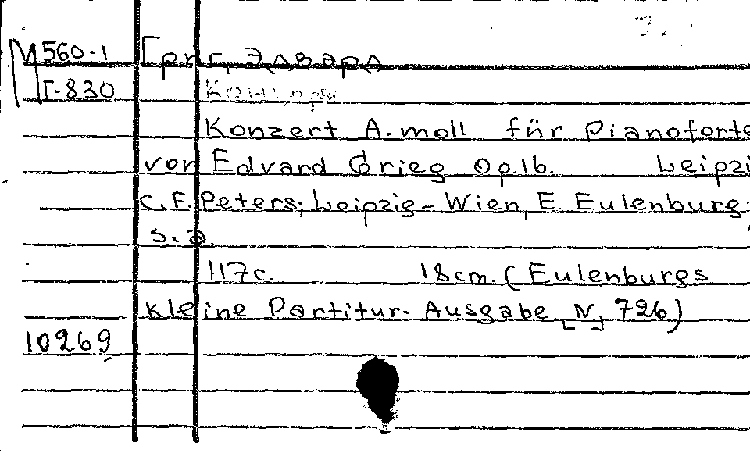 М 560-1 Григ, Эдвард
Г-830
Konzert A.moll für Pianoforte
von Edvard Grieg Op.16. Leipzi
C.F. Peters; Leipzig-Wien, E. Eulenburg;
s.a.
117c. 18cm. (Eulenburgs
kleine Partitur-Ausgabe [N] 726)
10269